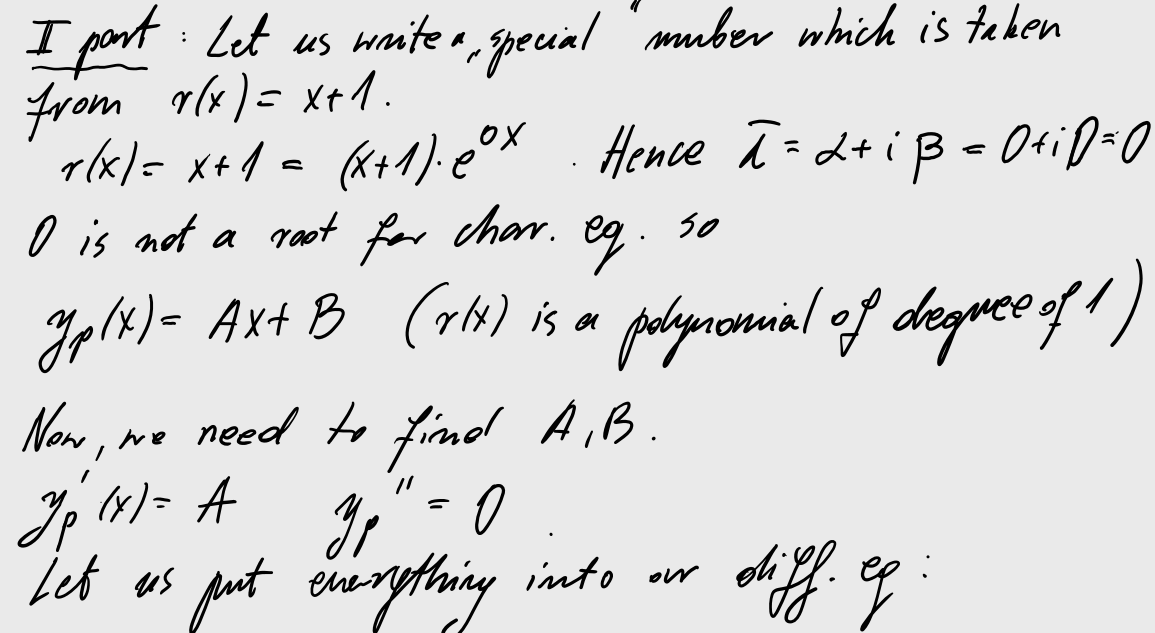 II part : Let us write a „special" number which is taken
from r(x) = x+1.
r(x) = x+1 = (x+1)·e^{0x} . Hence λ̄ = α + i β = 0+i0=0
0 is not a root for char. eq. so
y_p(x) = Ax + B (r(x) is a polynomial of degree of 1)
Now, we need to find A, B.
y_p'(x) = A y_p'' = 0 .
Let us put everything into our diff. eq :